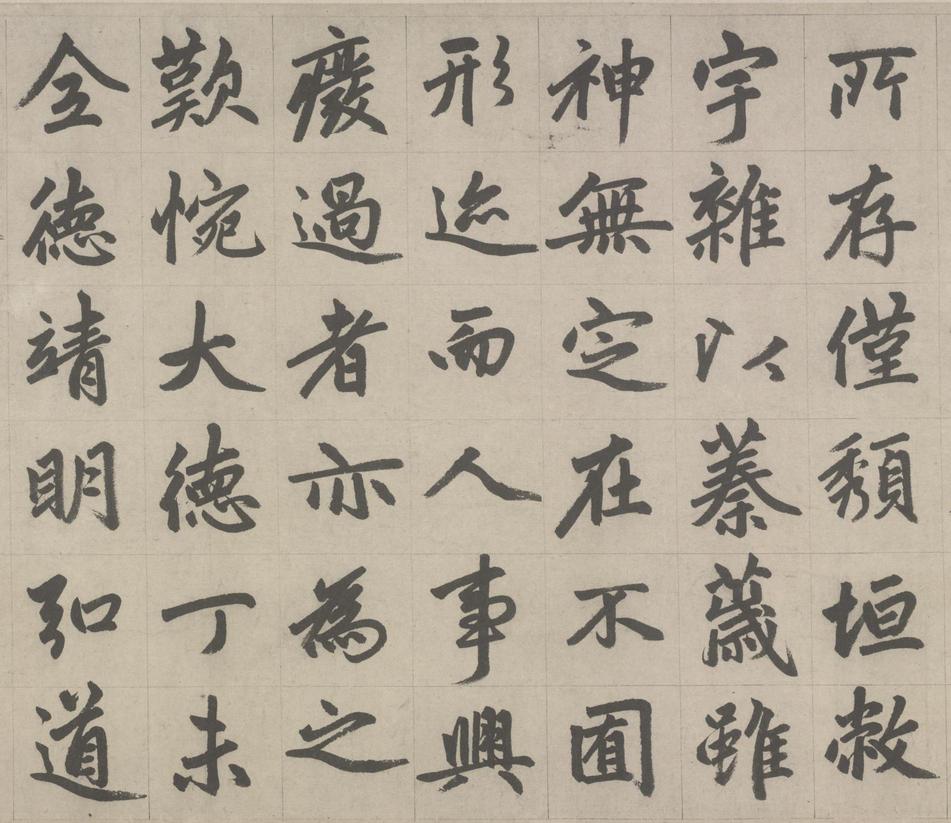 所存僅頽垣敝
宇雜以蓁薉雖
神無定在不囿
形迹而人事興
廢過者亦為之
歎惋大德丁未
全德靖明弘道